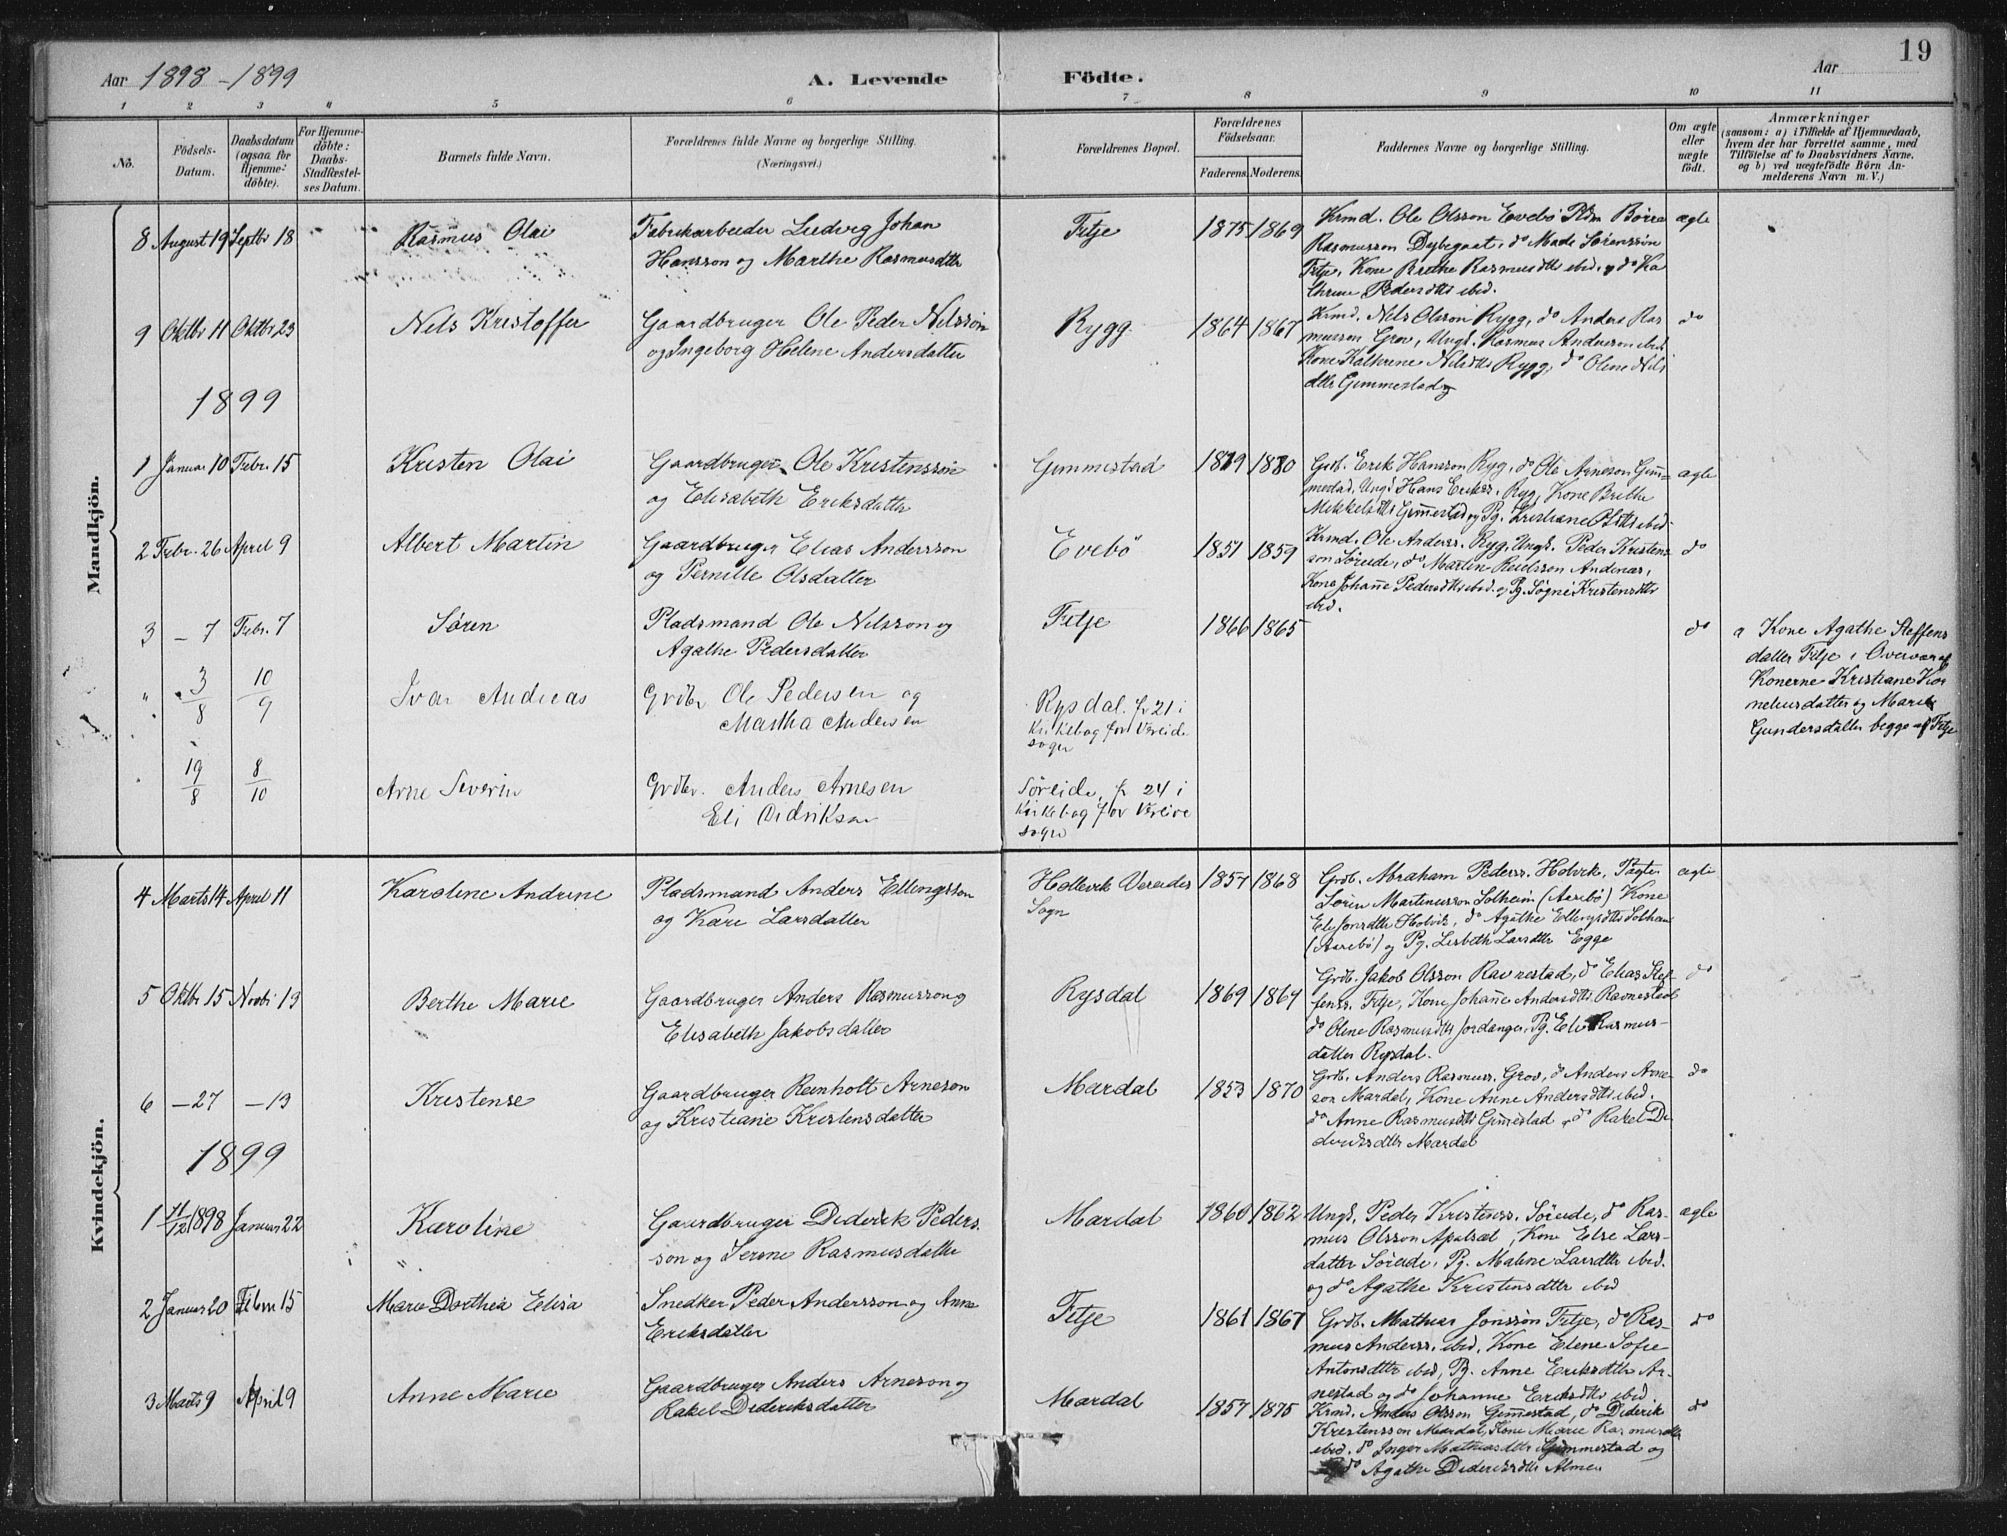 19
Aar 1898-1899
A. Levende Födte.
Aar
1 2 3 4 5 6 7 8 9 10 11
Nô.
Födsels-Datum.
Daabsdatum (ogsaa for Hjemme-döbte).
For Hjemme-döbte: Daabs-Stadfæstel-ses Datum.
Barnets fulde Navn.
Forældrenes fulde Navne og borgerlige Stilling. (Næringsvei.)
Forældrenes Bopæl.
Forældrenes Födselsaar.
Faderens. Moderens.
Faddernes Navne og borgerlige Stilling.
Om ægte eller uægte födt.
Anmærkninger (saasom: a) i Tilfælde af Hjemmedaab, hvem der har forrettet samme, med Tilföielse af to Daabsvidners Navne, og b) ved uægtefödte Börn An-melderens Navn m. V.)
Mandkjön.
8 August 19 Septbr 18 Rasmus Olai
Fabrikarbeider Ludvig Johan
Hansson og Marthe Rasmusdtr
Fitje 1875 1869
Krmd. Ole Olsson Evebö Børre
Rasmusson Dybegaat, do Mads Sørensson
Fitje, Kone Brithe Rasmusdtr ibid. og do Ka
thrine Pedersdtr ibid.
ægte
9 Oktbr 11 Oktbr 23 Nels Kristoffer
Gaardbruger Ole Peder Nilsson
og Ingeborg Helene Andersdatter
Rygg 1864 1867
Krmd. Nels Olsson Rygg, do Anders Ras
musson Grov, Ungk. Rasmus Andersson ibid.
Kone Kathrine Nilsdtr Rygg, do Oline Nils
dtr Gimmestad
do
1899
1 Januar 10 Febr. 15 Kristen Olai
Gaardbruger Ole Kristensson
og Elisabeth Eriksdatter
Gimmestad 1869 1870
Grdb. Erik Hansson Ryg, do Ole Arneson Gim=
mestad, Ungk Hans Erikss. Ryg, Kone Brithe
Mikkelsdtr Gimmestad og Pg. Kristiane Olsdtr ibid.
ægte
2 Febr. 26 April 9 Albert Martin
Gaardbruger Elias Andersson
og Pernille Olsdatter
Evebö 1851 1859
Krmd. Ole Anderss. Ryg, Ungk. Peder Kristens
son Søreide, do Martin Andenæs,
Kone Johanne Pedersdtr ibid. og Pg. Søgni Kristensdtr
ibid.
do
3 - 7 Febr. 7 Søren
Pladsmand Ole Nilsson og
Agathe Pedersdatter
Fitje 1866 1865
do
a Kone Agathe Steffens
datter Fitje i Overvær af
Konerne Kristiane Kor
neliusdatter og Marie
Gundersdatter begge af Fitje
" 3/8 10/9 Ivar Andreas
Grdbr Ole Pedersen og
Martha Andersen
Rysdal. fr 21 i
Kirkebog for Vereide
sogn
" 19/8 8/10 Arne Severin
Grdbr. Anders Arnesen
Eli Didriksen
Søreide, fr 24 i
Kirkebog for Vereide
sogn
Kvindekjön.
4 Marts 14 April 11 Karoline Andrine
Pladsmand Anders Ellingsson
og Kari Larsdatter
Hollevik Vereides
Sogn
1857 1868
Grdb. Abraham Pederss. Holvik,
Søren Martinusson Solheim (Aarebø) Kone
Eli Jonsdtr Holvik, do Agathe Ellingsdtr Solheim
(Aarebø) og Pg. Lisbeth Larsdtr Egge
ægte
5 Oktbr 15 Novbr 13 Berthe Marie
Gaardbruger Anders Rasmusson og
Elisabeth Jakobsdatter
Rysdal 1869 1864
Grdb. Jakob Olsson Ravnestad, do Elias Stef-
fenss. Fitje, Kone Johanne Andersdtr Ravnestad
do Oline Rasmusdtr Jordanger, Pg. Eli Rasmus-
datter Rysdal.
do
6 - 27 - 13 Kristense
Gaardbruger Reinholt Arneson
og Kristiane Kristensdatter
Mardal 1853 1870
Grdb. Anders Rasmuss. Grov, do Anders Arne-
son Mardal, Kone Anne Andersdtr ibid.
do Anne Rasmusdtr Gimmestad og do Rakel Di-
deriksdtr Mardal
do
1899
1 11/12 1898 Januar 22 Karoline
Gaardbruger Diderik Peders-
son og Serine Rasmusdatter
Mardal 1860 1862
Ungk. Peder Kristenss. Søreide, do Ras-
mus Olsson Apalsæt, Kone Else Lars-
datter Søreide, Pg. Maline Larsdtr ibid.
og do Agathe Kristensdtr ibid
ægte
2 Januar 20 Febr 15 Marie Dorthea Elisa
Snedker Peder Andersson og Anne
Eriksdatter
Fitje 1861 1867
Grdb. Mathias Jonsson Fitje, do Ras-
mus Anderss. ibid, Kone Elene Sofie
Antonsdtr ibid, Pg. Anne Eriksdtr Ar-
nestad og do Johanne Eriksdtr ibid.
do
3 Marts 9 April 9 Anne Marie
Gaardbruger Anders Arneson og
Rakel Dideriksdatter
Mardal 1857 1875
Krmd. Anders Olsson Gimmestad, do Diderik
Kristensson Mardal, Kone Marie Rasmusdtr
ibid. do Inger Mathiasdtr Gimmestad og
do Agathe Dideriksdtr Alme
do